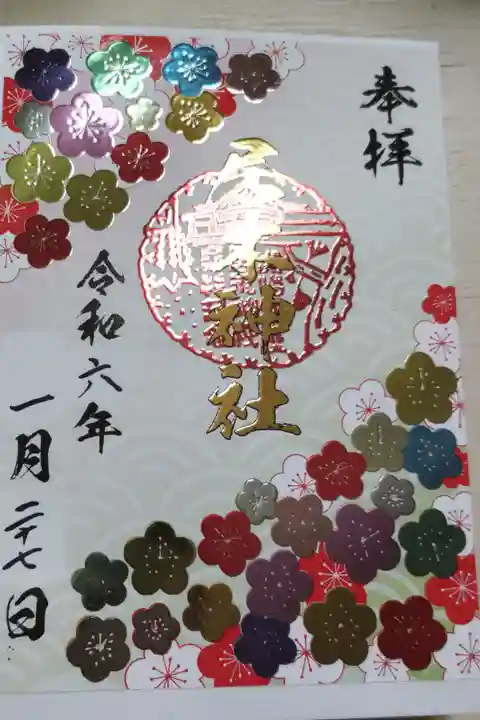 奉拝
神社
令和六年
一月二十七日